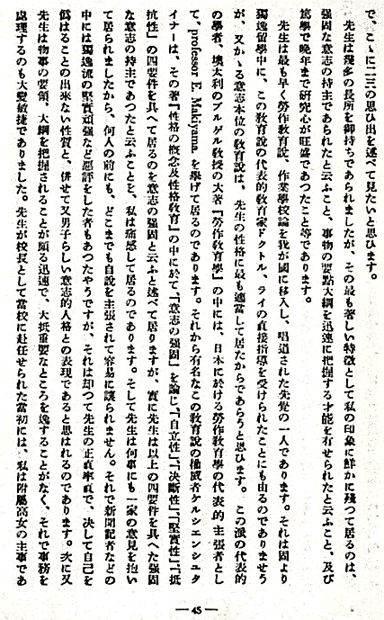 で、こゝに二三の思ひ出を述べて見たいと思ひます。
先生は幾多の長所を御持ちであられましたが、その最も著しい特徴として私の印象に鮮かに殘つて居るのは、
強固な意志の持主であられたと云ふこと、事物の要點大綱を迅速に把握する才能を有せられたと云ふこと、及び
篤學で晩年まで研究心が旺盛であつたこと等であります。
先生は最も早く勞作教育說、作業學校論を我が國に移入し、唱道された先覺の一人であります。それは固より
獨逸留學中に、この教育說の代表的教育家ドクトル、ライの直接指導を受けられたことにも由るのでありませう
が、又かゝる意志本位の教育說は、先生の性格に最も適當して居たからであらうと思ひます。この派の代表的
の學者、墺太利のブルゲル教授の大著『勞作教育學』の中には、日本に於ける勞作教育學の代表的主張者とし
て、professor E. Makiyama. を擧げて居るのであります。それから有名なこの教育說の權威者ケルシエンシユタ
イナーは、その著『性格の概念及性格教育』の中に於て、『意志の强固』を論じ、『自立性』、『決斷性』、『堅實性』、『抵
抗性』の四要件を具へて居るのを意志の强固と云ふと述べて居りますが、實に先生は以上の四要件を具へた强固
な意志の持主であつたと云ふことを、私は痛感して居るのであります。そして先生は何事にも一家の意見を抱い
て居られましたから、何人の前にも、どこまでも自說を主張されて容易に讓られません。それで新聞記者などの
中には獨逸流の堅實頑强など惡評をした者もあつたやうですが、それは却つて先生の正直率直で、決して自己を
僞はることの出來ない性質と、併せて又男子らしい意志的人格との表現であると思はれるのであります。次に又
先生は物事の要領、大綱を把握されることが頗る迅速で、大抵重要なところを逸することがなく、それで事務を
處理するのも大變敏捷でありました。先生が校長として當校に赴任せられた當初には、私は附屬高女の主事であ
— 45 —